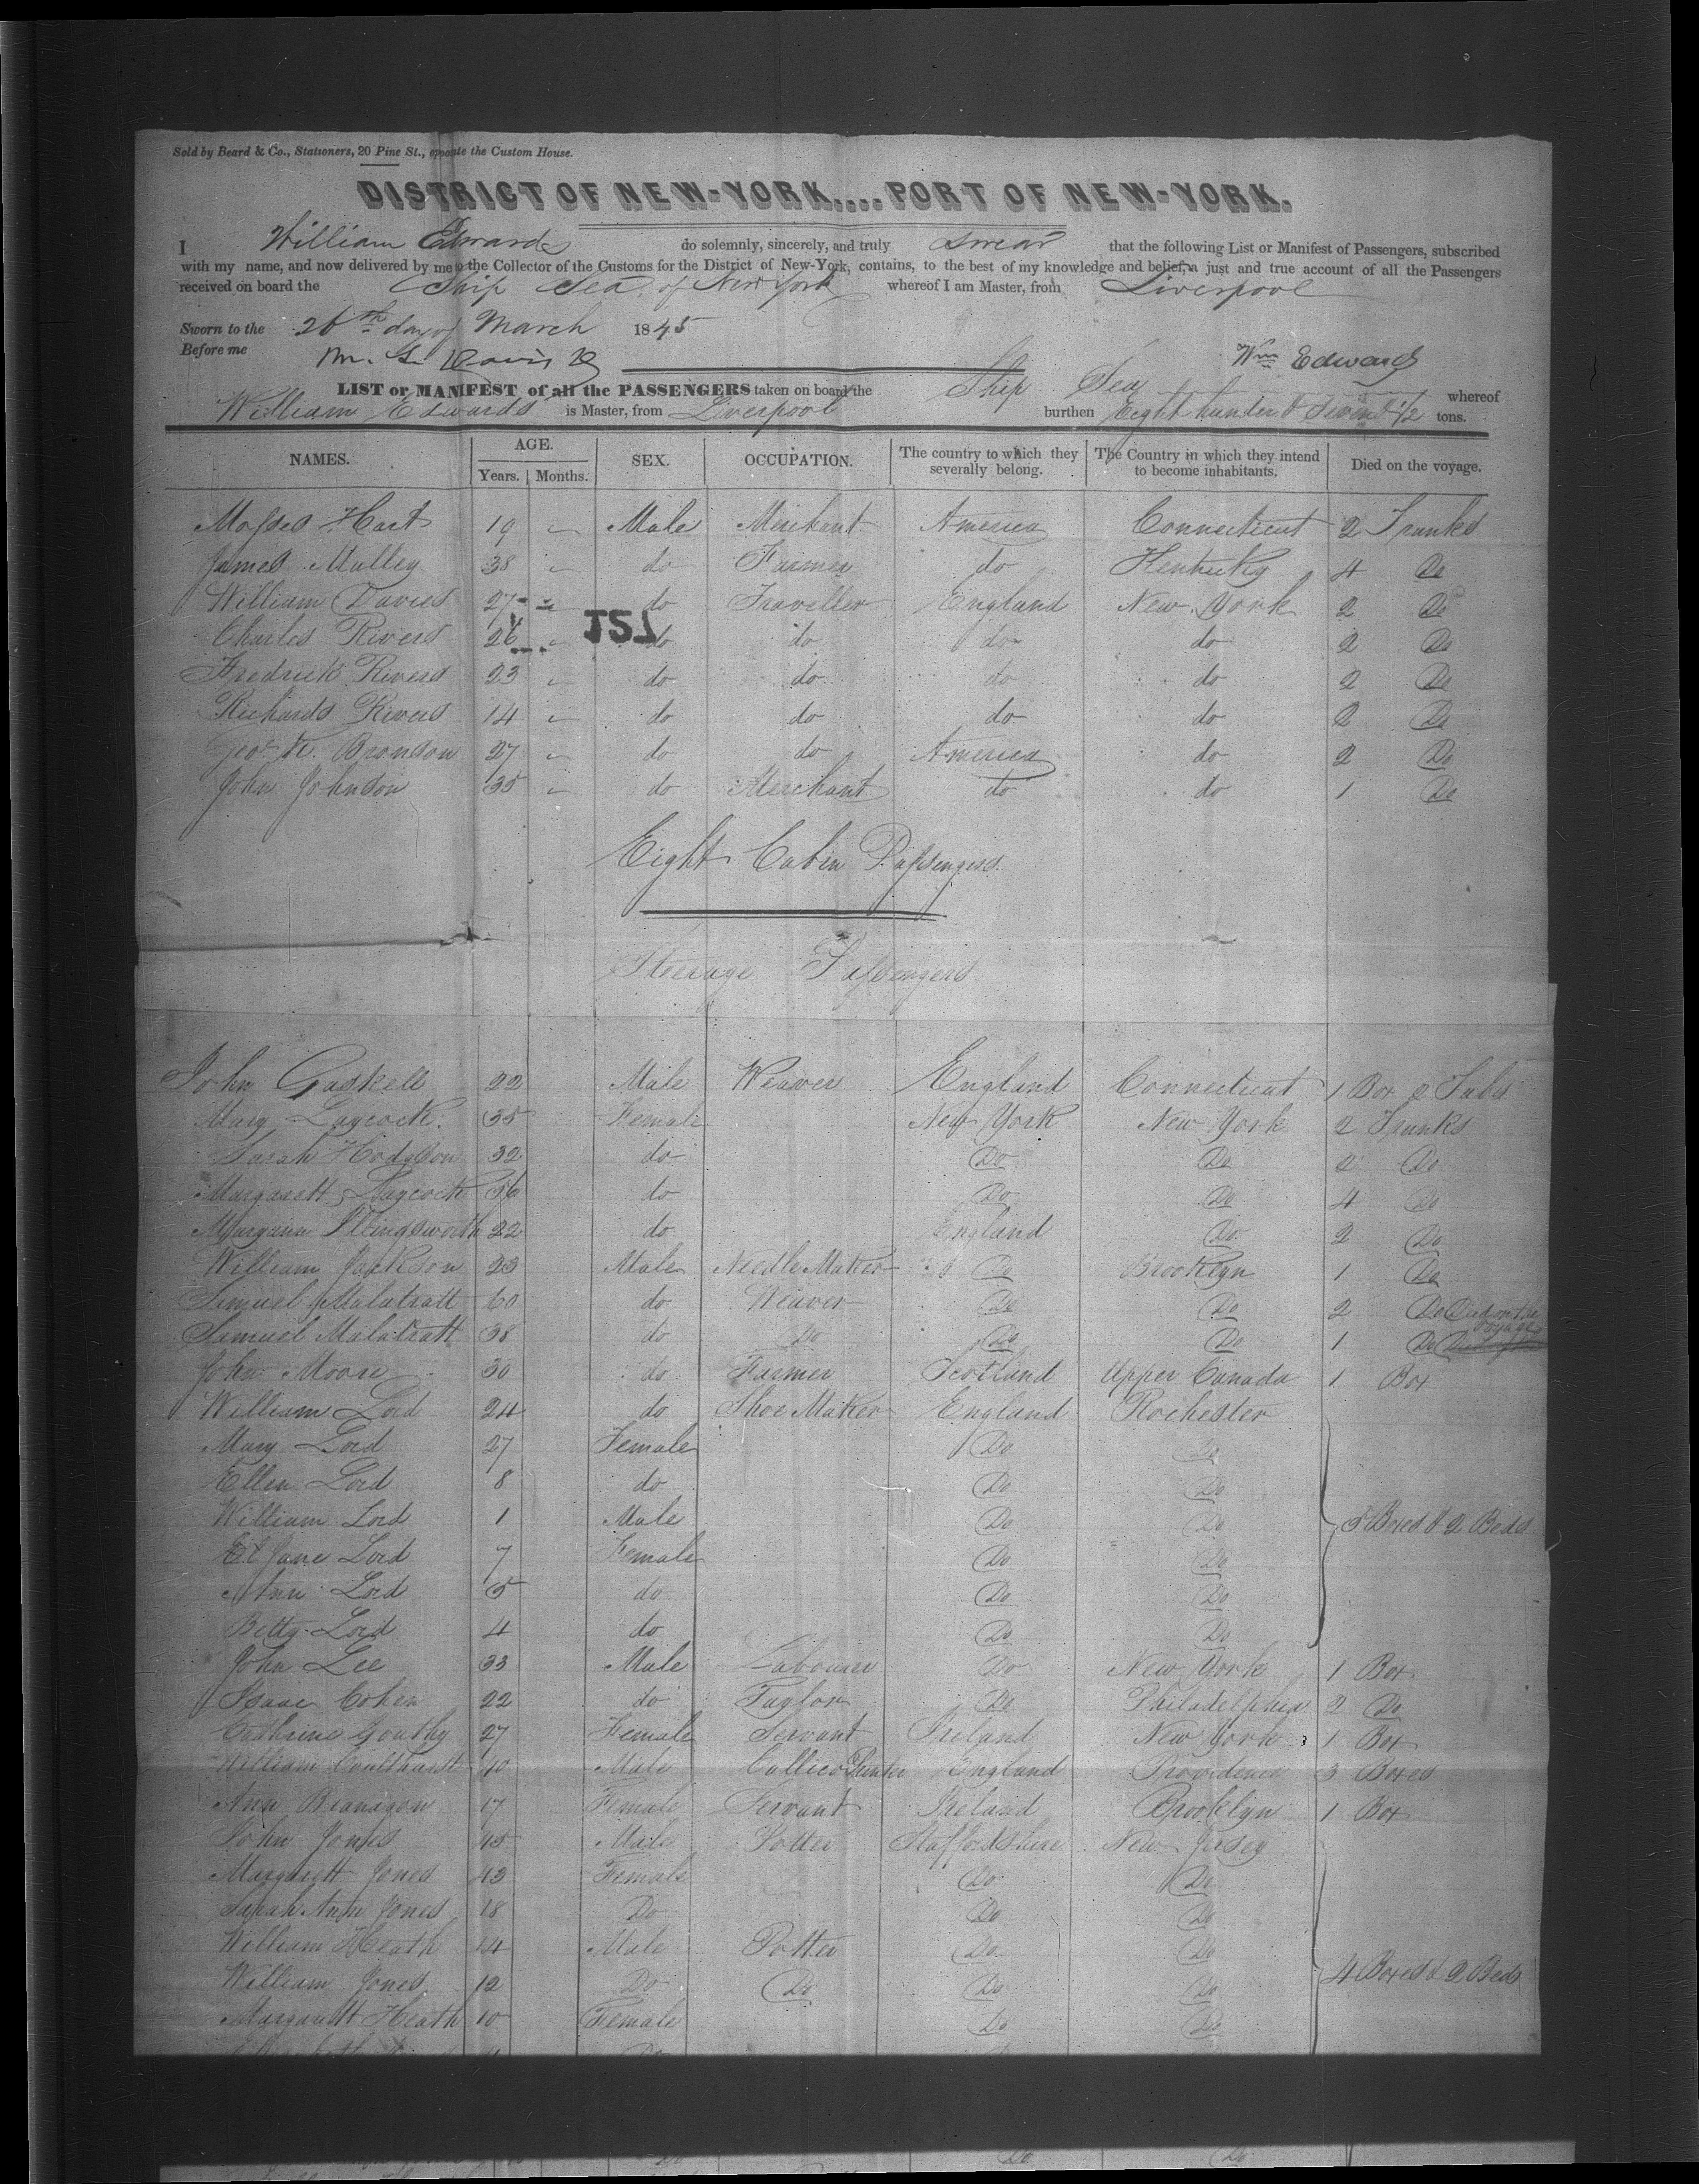 Sold by Beard & Co., Stationers, 20 Pine St., opposite the Custom House.
DISTRICT OF NEW-YORK....PORT OF NEW-YORK.
I William Edwards do solemnly, sincerely, and truly swear that the following List or Manifest of Passengers, subscribed
with my name, and now delivered by me to the Collector of the Customs for the District of New-York, contains, to the best of my knowledge and belief, a just and true account of all the Passengers
received on board the Ship Sea of New York whereof I am Master, from Liverpool
Sworn to the 26th day of March 1845
Before me Wm Edwards
LIST or MANIFEST of all the PASSENGERS taken on board the Ship Sea whereof
William Edwards is Master, from Liverpool burthen Eight hundred & Seven 1/2 tons.
NAMES. AGE. Years. Months. SEX. OCCUPATION. The country to which they severally belong. The Country in which they intend to become inhabitants. Died on the voyage.
Mosses Hart 19 " Male Merchant America Connecticut 2 Trunks
James Mulley 38 " do Farmer do Kentucky 4 Do
William Davies 27 " do Traveller England New York 2 Do
Charles Rivers 26 " do do do do 2 Do
Fredrick Rivers 23 " do do do do 2 Do
Richards Rivers 14 " do do do do 2 Do
Geo. Bronson 27 " do do America do 2 Do
John Johnson 35 " do Merchant do do 1 Do
Eight Cabin Passengers
Steerage Passengers
John Gaskell 22 Male Weaver England Connecticut 1 Box
Mary Laycock 35 Female New York New York 2 Trunks
Sarah Hodgson 32 do Do Do 2 Do
Margarett Laycock 56 do Do Do 4 Do
Maryann Illingsworth 22 do England Do 2 Do
William Jackson 23 Male Needle Maker Do Brooklyn 1 Do
Samuel Malatratt 60 do Weaver Do Do 2 Do Died on the voyage
Samuel Malatratt 38 do Do Do Do 1 Do
John Moore 30 do Farmer Scotland Upper Canada 1 Box
William Lord 24 do Shoe Maker England Rochester
Mary Lord 27 Female Do Do
Ellen Lord 8 do Do Do
William Lord 1 Male Do Do Boxes & 2 Beds
Jane Lord 7 Female Do Do
Ann Lord 5 do Do Do
Betty Lord 4 do Do Do
John Lee 33 Male Labourer Do New York 1 Box
Isaac Cohen 22 do Taylor Do Philadelphia 2 Do
Cathrine 27 Female Servant Ireland New York 1 Box
William Coulthurst 40 Male Callico Printer England Providence 3 Boxes
Ann Branagen 17 Female Servant Ireland Brooklyn 1 Box
John Jones 45 Male Potter Staffordshire New Jersey
Margarett Jones 43 Female Do Do
Sarah Ann Jones 18 Do Do Do
William Heath 14 Male Potter Do Do
William Jones 12 Do Do Do Do 4 Boxes & 2 Beds
Margarett Heath 10 Female Do Do